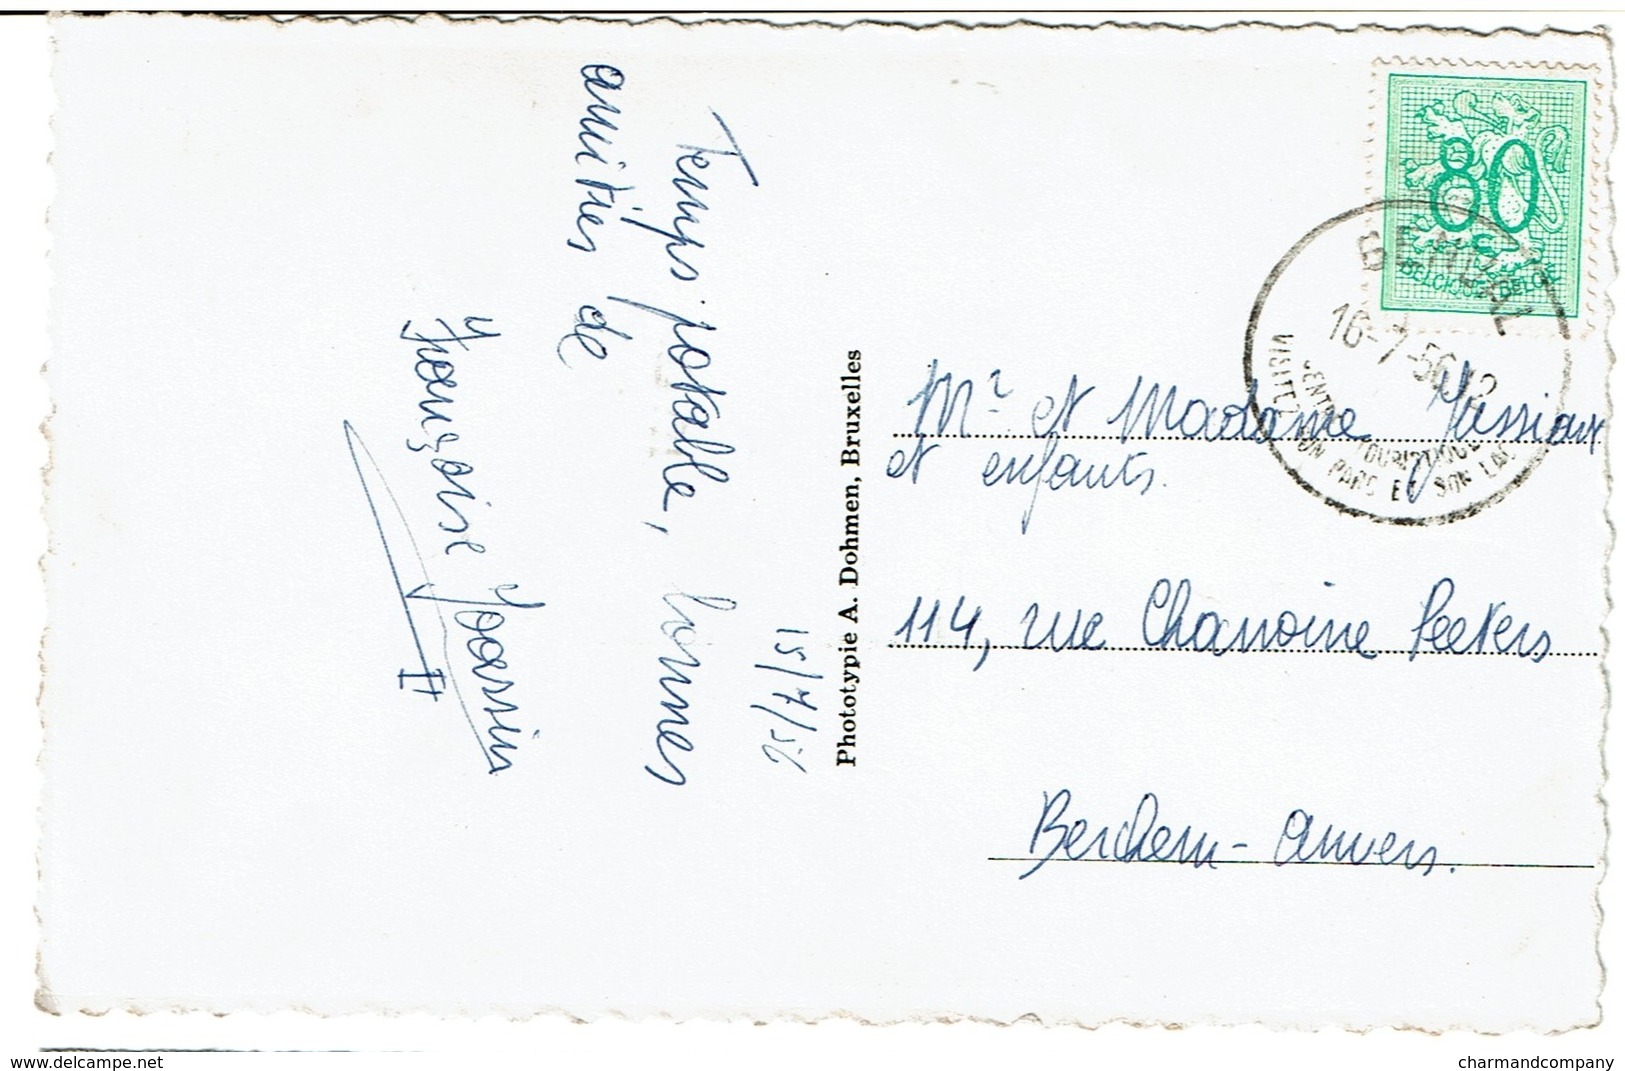 15/7/56
Temps potable, bonnes
amitiés de
Françoise Joassin
Phototypie A. Dohmen, Bruxelles
80
BELGIQUE-BELGIE
16-7-56
CENTRE TOURISTIQUE
VISITEZ SON PARC ET SON LAC
Mr et Madame Jussiaux
et enfants.
114, rue Chanoine Peeters
Berchem-Anvers.
www.delcampe.net
charmandcompany